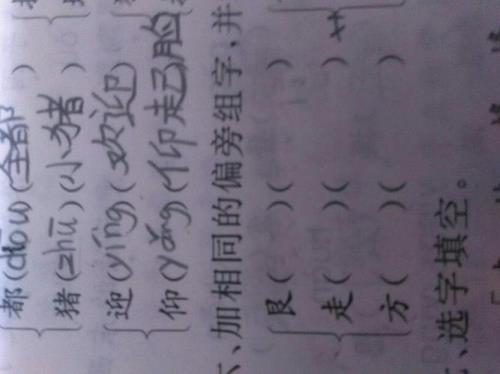 都(dōu)(全都 )
猪(zhū)(小猪 )
迎(yíng)(欢迎)
仰(yǎng)(仰起脸
、加相同的偏旁组字,并
艮( )( )
走( )( ) 艹
方( )(
、选字填空。